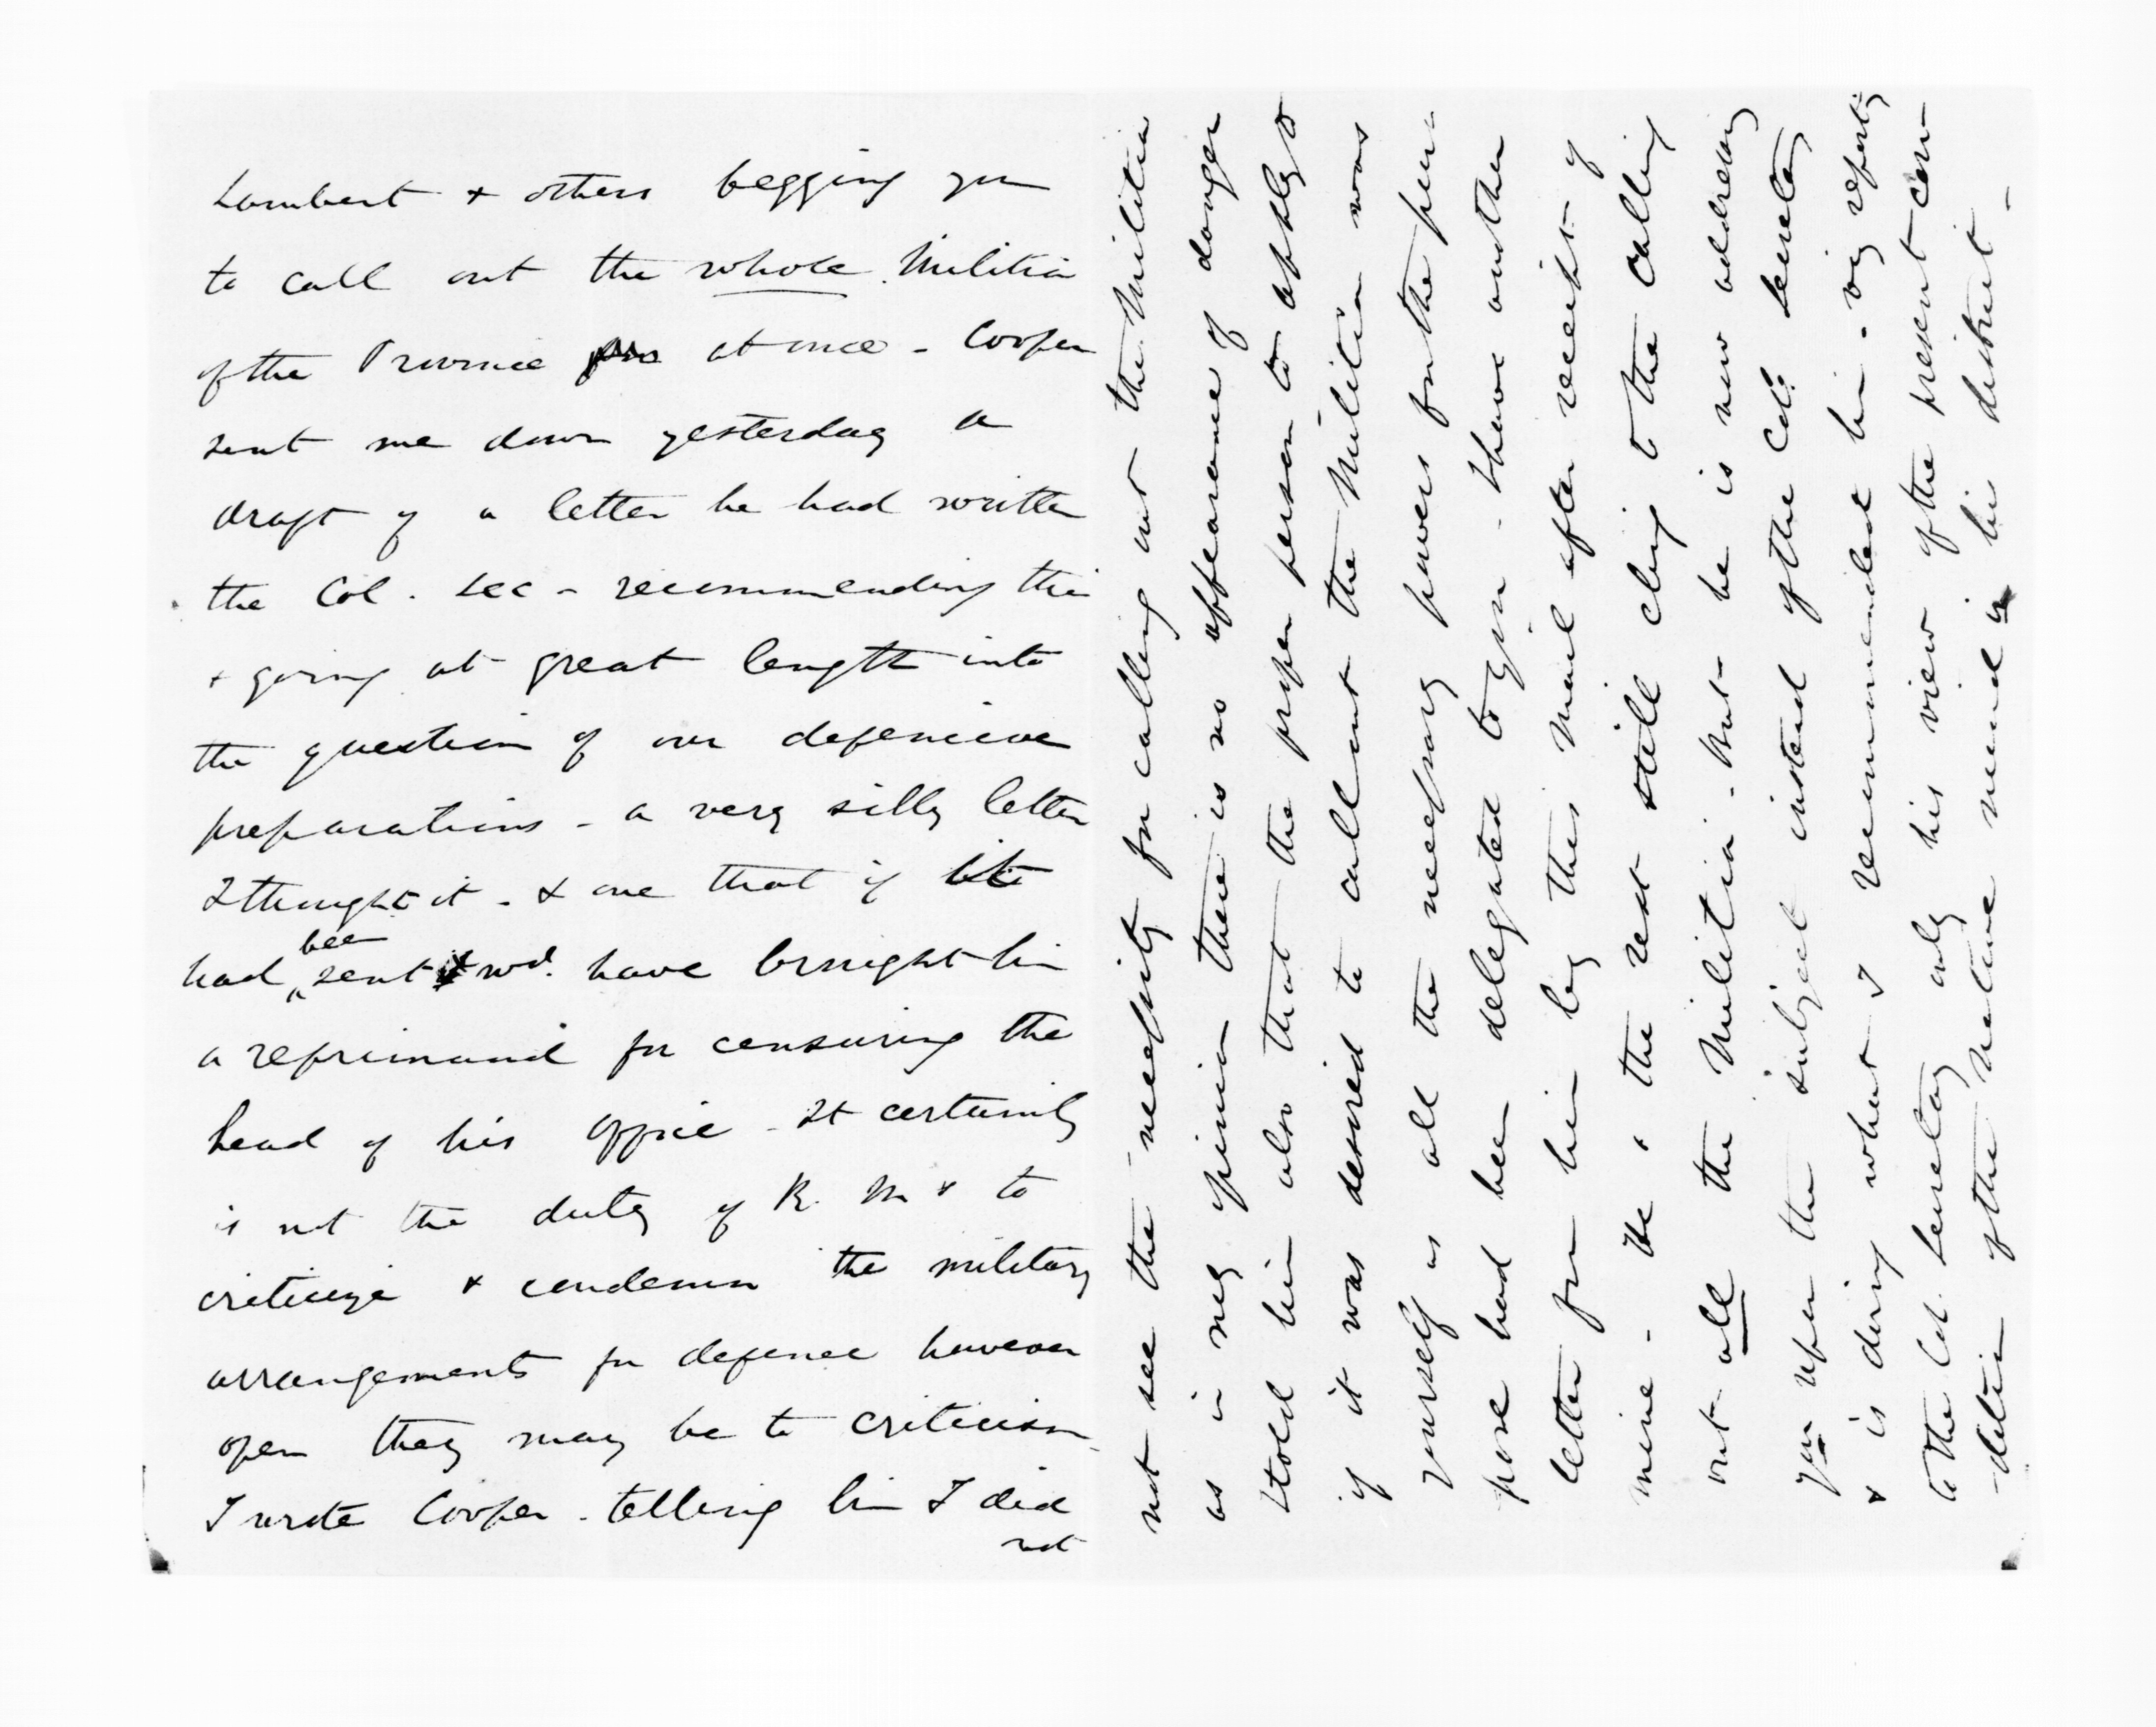 Lambert & others begging you
to call out the whole Militia
of the Province at once - Cooper
sent me down yesterday a
draft of a letter he had written
the Col. Sec - recommending this
& going at great length into
the question of our defensive
preparations - a very silly letter
I thought it - & one that if it
had been sent wd. have brought him
a reprimand for censuring the
head of his office - It certainly
is not the duty of R. Ms to
criticize & condemn the military
arrangements for defence however
open they may be to criticism
I wrote Cooper - telling him I did
not
not see the necessity for calling out the Militia
as in my opinion there is no appearance of danger
I told him also that the proper person to apply to
if it was desired to call out the Militia was
yourself as all the necessary powers for the pur=
pose had been delegated to you - I have another
letter from him by this mail after receipt of
mine - He & the rest still cling to the calling
out all the Militia - but he is now addressing
you upon the subject instead of the Col: Secretary
& is doing what I recommended him - viz reporting
to the Col. Secretary only his view of the present con-
-dition of the native mind in his district -